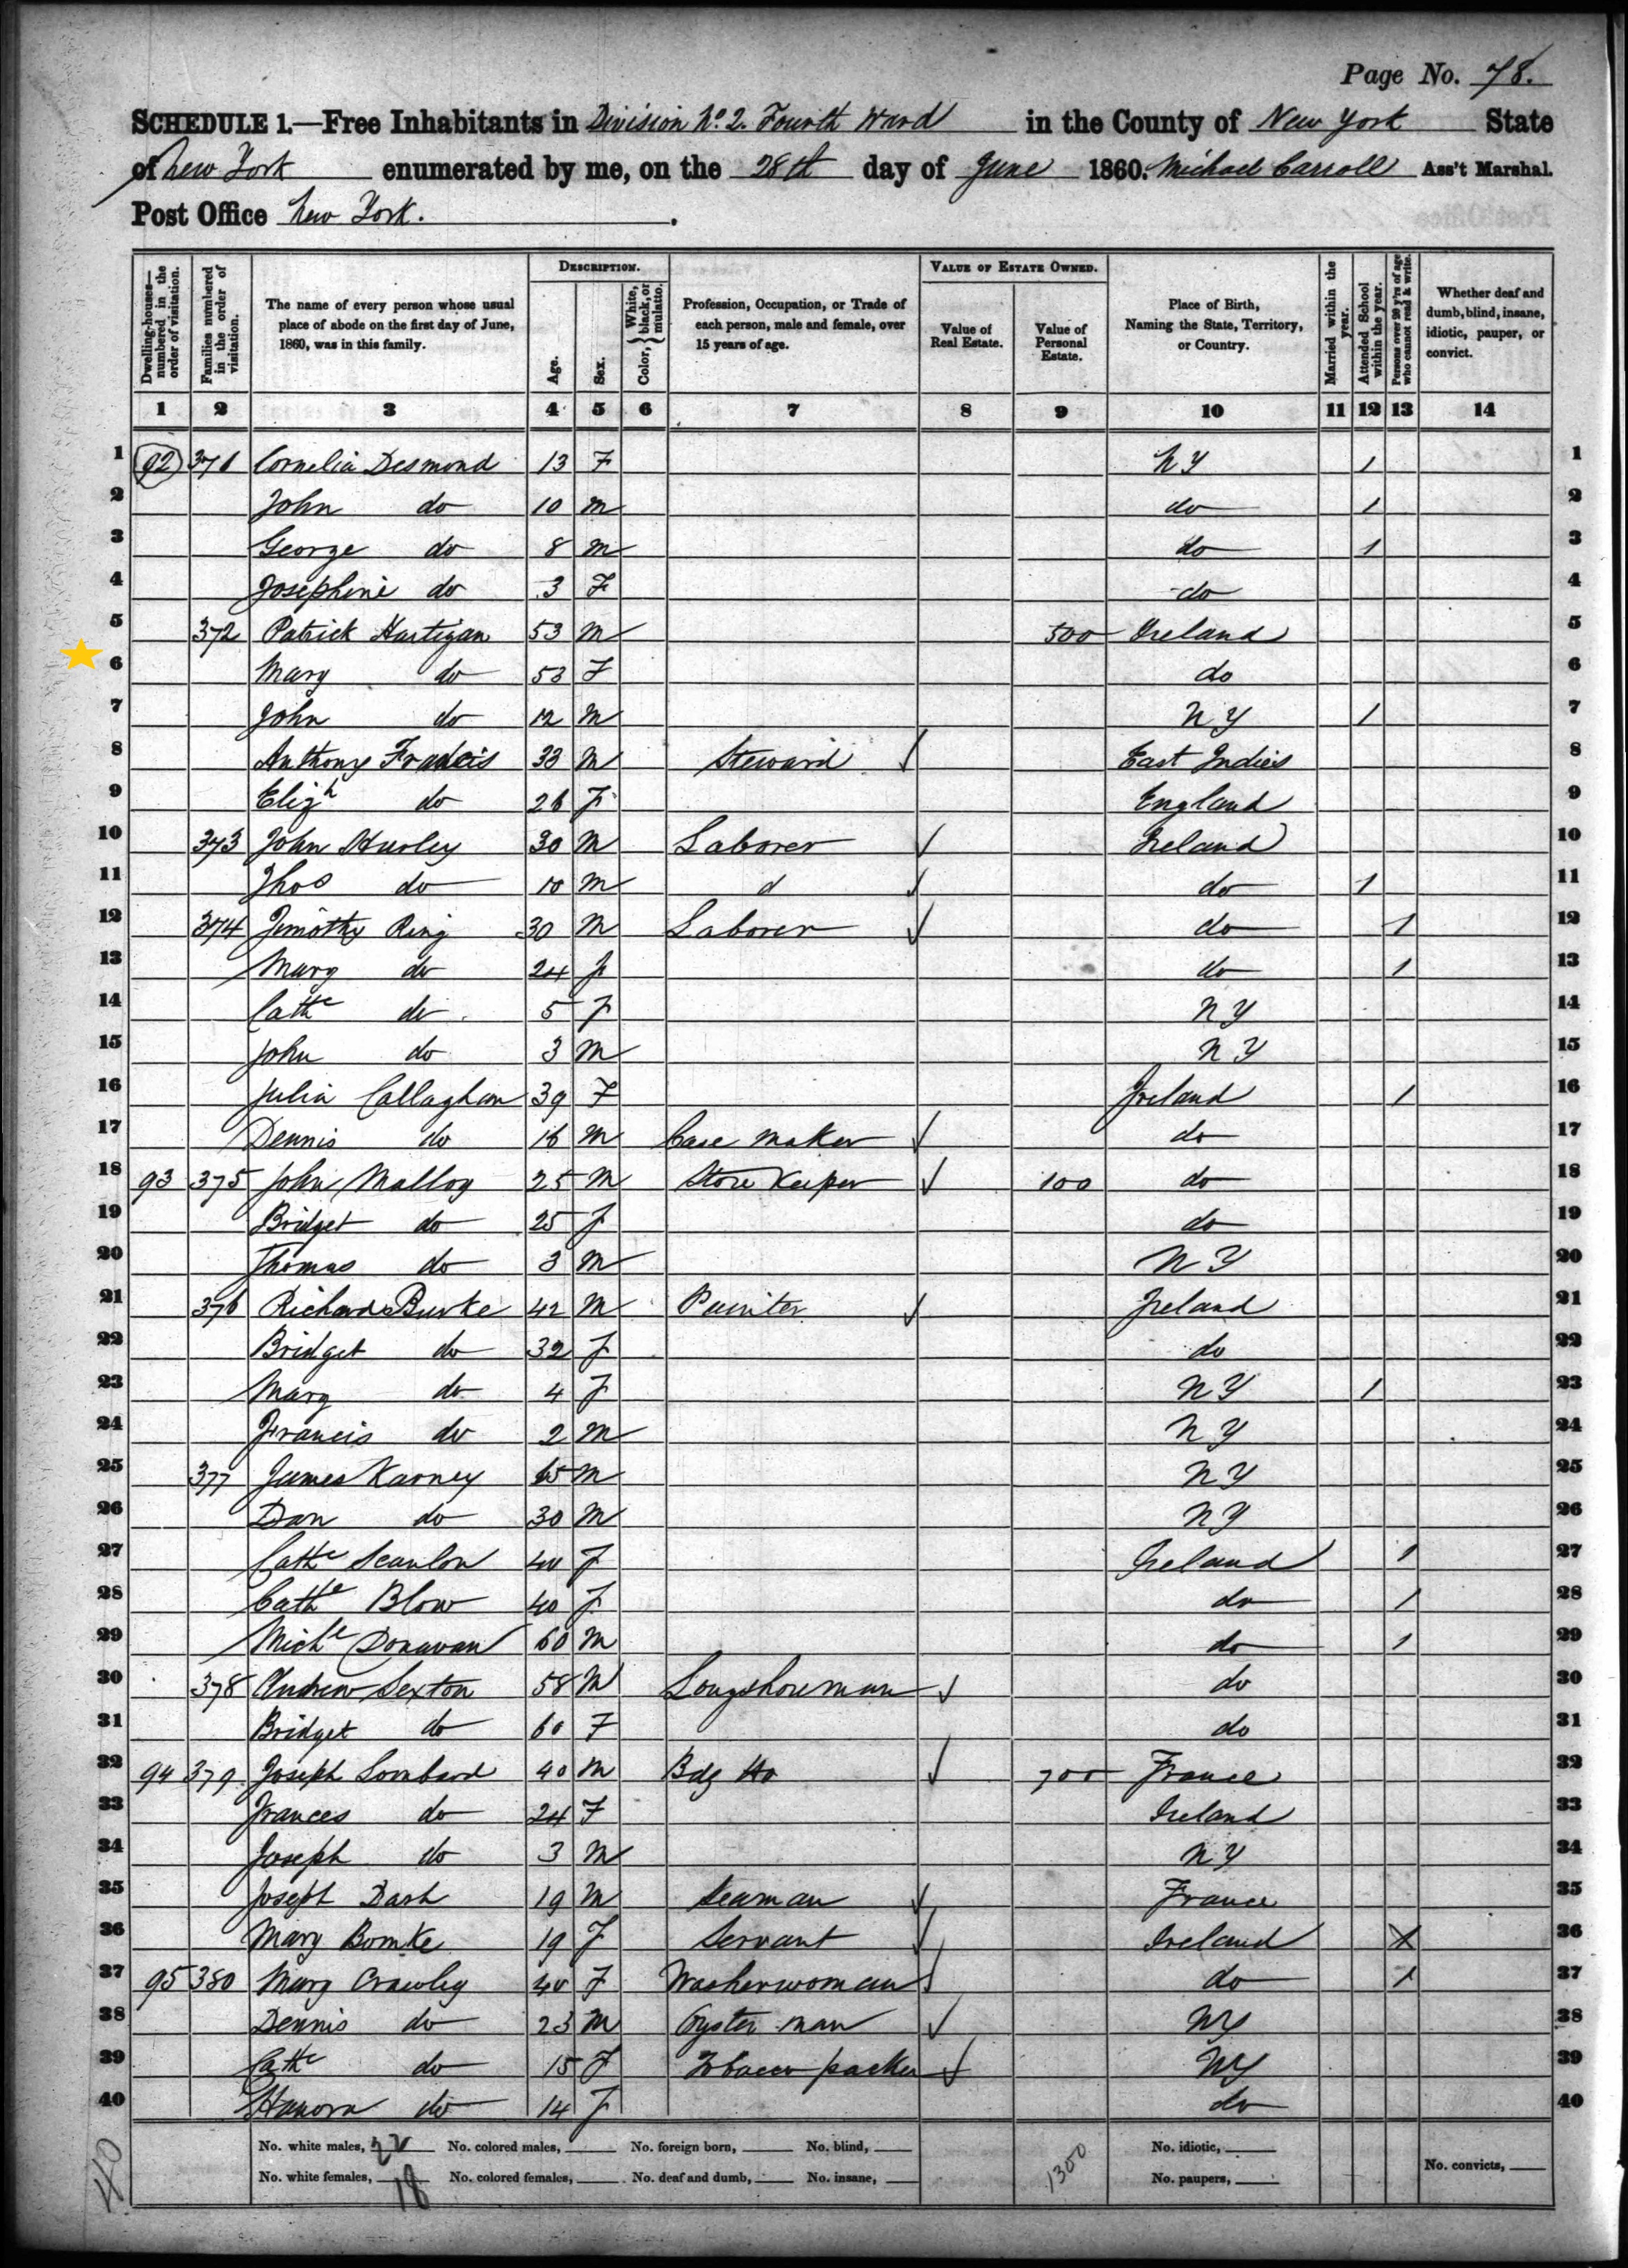 Page No. 78.
SCHEDULE 1.—Free Inhabitants in Division No. 2. Fourth Ward in the County of New York State
of New York enumerated by me, on the 28th day of June 1860. Michael Carroll Ass't Marshal.
Post Office New York.
Dwelling-houses—numbered in the order of visitation.
Families numbered in the order of visitation.
The name of every person whose usual place of abode on the first day of June, 1860, was in this family.
DESCRIPTION.
Age.
Sex.
Color, { White, black, or mulatto.
Profession, Occupation, or Trade of each person, male and female, over 15 years of age.
VALUE OF ESTATE OWNED.
Value of Real Estate.
Value of Personal Estate.
Place of Birth, Naming the State, Territory, or Country.
Married within the year.
Attended School within the year.
Persons over 20 y'rs of age who cannot read & write.
Whether deaf and dumb, blind, insane, idiotic, pauper, or convict.
1 2 3 4 5 6 7 8 9 10 11 12 13 14
1 92 371 Cornelia Desmond 13 F N Y 1 1
2 John do 10 m do 1 2
3 George do 8 m do 1 3
4 Josephine do 3 F do 4
5 372 Patrick Hartigan 53 m 500 Ireland 5
6 Mary do 53 F do 6
7 John do 12 m N Y 1 7
8 Anthony Francis 33 m Steward ✓ East Indies 8
9 Elizh do 26 F England 9
10 373 John Hurley 30 m Laborer ✓ Ireland 10
11 Thos do 10 m d ✓ do 1 11
12 374 Timothy Ring 30 m Laborer ✓ do 1 12
13 Mary do 24 f do 1 13
14 Cathe do 5 f N Y 14
15 John do 3 m N Y 15
16 Julia Callaghan 39 F Ireland 1 16
17 Dennis do 16 m Case maker ✓ do 17
18 93 375 John Malloy 25 m Store Keeper ✓ 100 do 18
19 Bridget do 25 f do 19
20 Thomas do 3 m N Y 20
21 376 Richard Burke 42 m Painter ✓ Ireland 21
22 Bridget do 32 f do 22
23 Mary do 4 f N Y 1 23
24 Francis do 2 m N Y 24
25 377 James Karney 65 m N Y 25
26 Dan do 30 m N Y 26
27 Cathe Scanlon 40 f Ireland 1 27
28 Cathe Blow 40 f do 1 28
29 Michl Donavan 60 m do 1 29
30 378 Andrew Sexton 58 M Longshoreman ✓ do 30
31 Bridget do 60 F do 31
32 94 379 Joseph Lombard 40 m Bdg Ho ✓ 700 France 32
33 Frances do 24 F Ireland 33
34 Joseph do 3 m N Y 34
35 Joseph Dash 19 m Seaman ✓ France 35
36 Mary 19 f Servant ✓ Ireland X 36
37 95 380 Mary Crawley 40 F Washerwoman ✓ do 1 37
38 Dennis do 23 m Oyster man ✓ NY 38
39 Cathe do 15 F Tobacco packer ✓ NY 39
40 Hanora do 14 f do 40
No. white males, 22 No. colored males, No. foreign born, No. blind, 1300 No. idiotic,
No. white females, 18 No. colored females, No. deaf and dumb, No. insane, No. paupers, No. convicts,
40